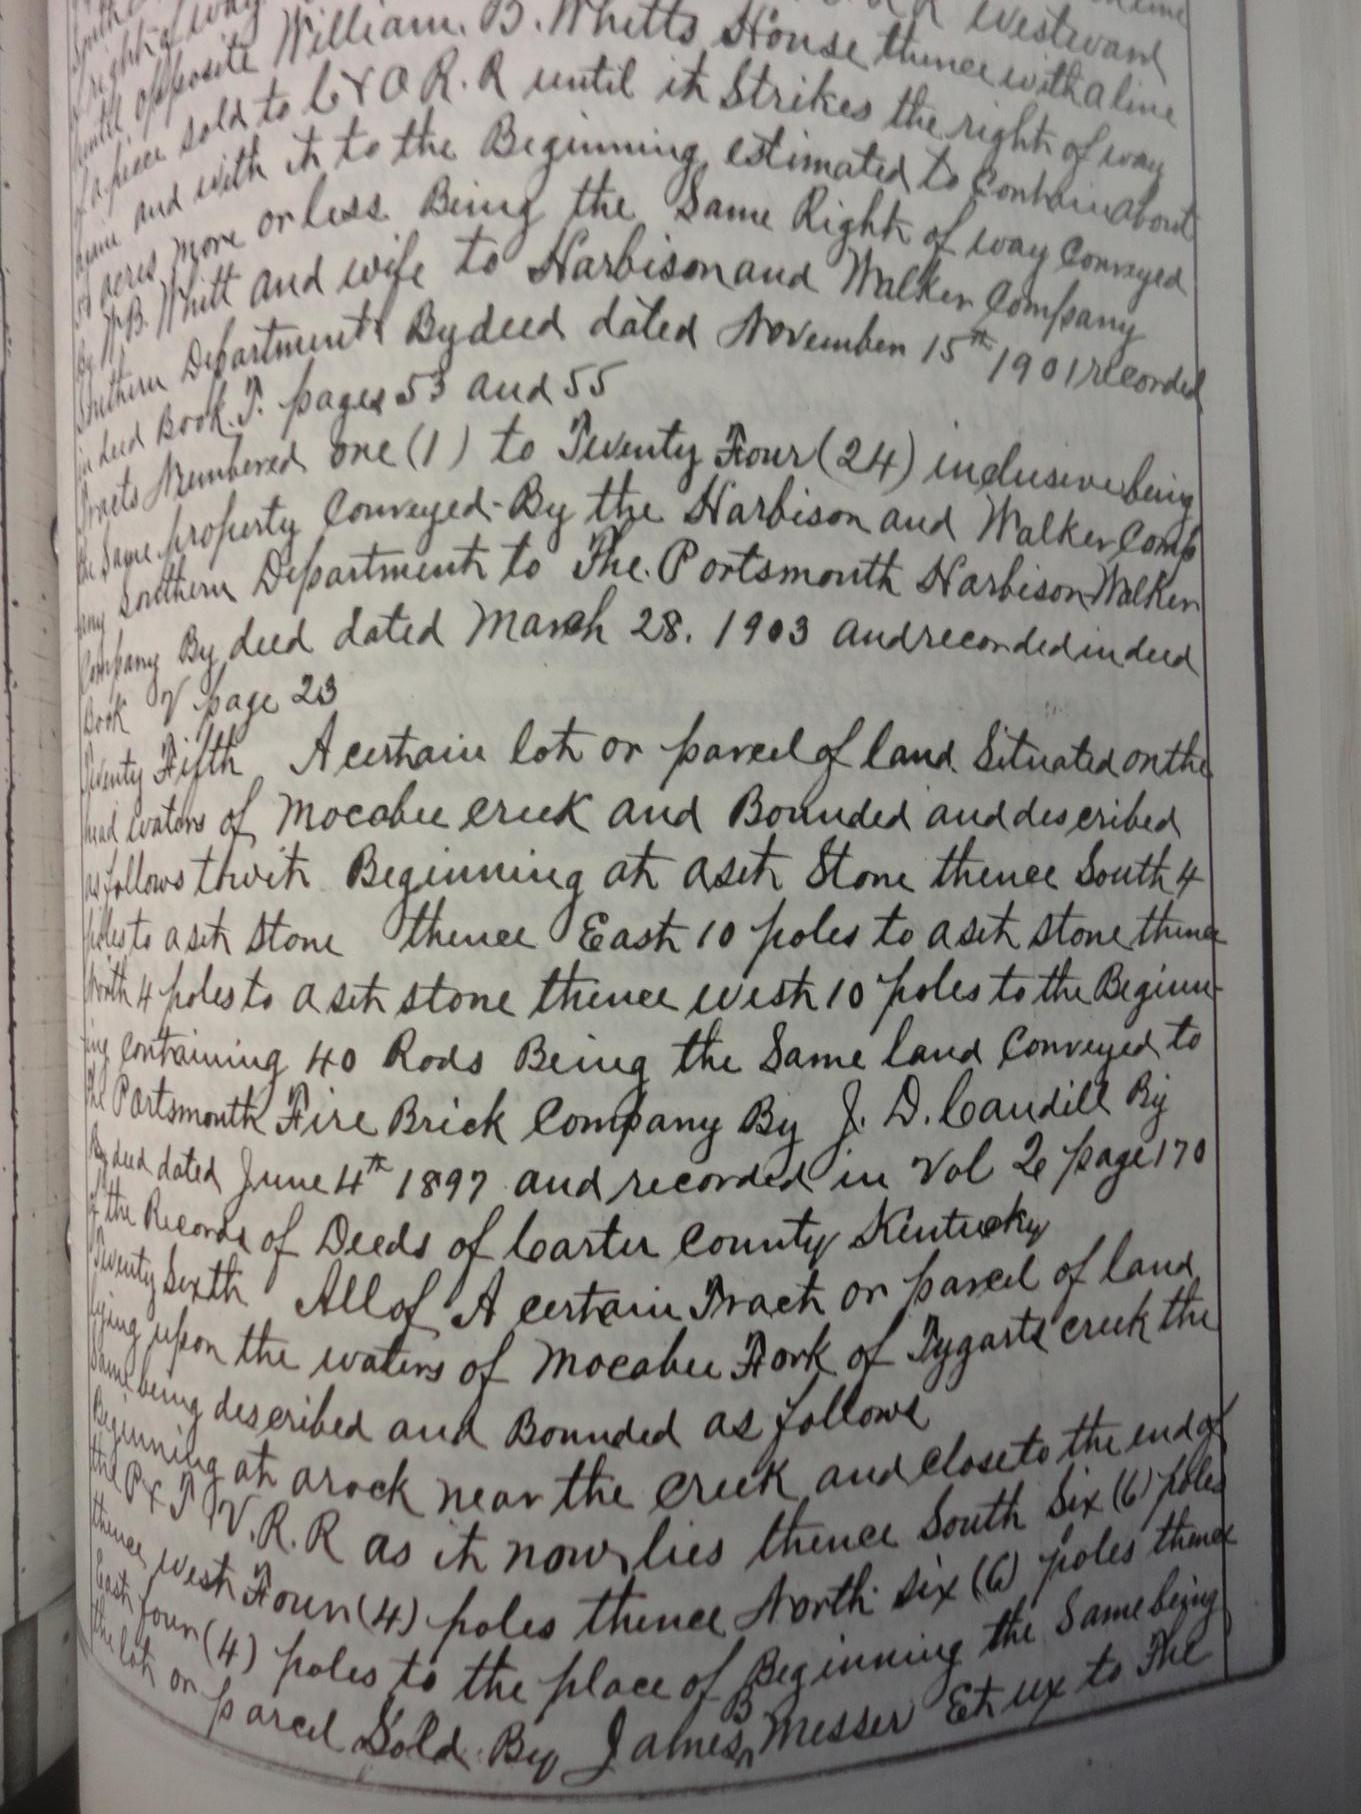 Westward
of right of way
until opposite William. B. Whitts House thence with a line
of a piece sold to C & O R. R until it Strikes the right of way
again and with it to the Beginning, estimated to Contain about
acres more or less Being the Same Right of way Conveyed
by W.B. Whitt and wife to Harbison and Walker Company
Southern Department By deed dated November 15th 1901 recorded
in deed Book. T. pages 53 and 55
Tracts Numbered one (1) to Twenty Four (24) inclusive being
the Same property Conveyed - By the Harbison and Walker Comp
any Southern Department to The. Portsmouth Harbison Walker
Company By deed dated March 28. 1903 and recorded in deed
Book V page 23
Twenty Fifth A certain lot or parcel of land Situated on the
head waters of Mocabee creek and Bounded and described
as follows towit Beginning at a set Stone thence South 4
poles to a set stone thence East 10 poles to a set stone thence
North 4 poles to a set stone thence west 10 poles to the Beginn-
ing Containing 40 Rods Being the Same land Conveyed to
the Portsmouth Fire Brick Company By J. D. Caudill By
By deed dated June 4th 1897 and recorded in Vol page 170
of the Records of Deeds of Carter County Kentucky
Twenty Sixth All of A certain Tract or parcel of land
lying upon the waters of Mocabee Fork of Tygarts creek the
Same being described and Bounded as follows
Beginning at a rock near the creek and close to the end of
the P & T V. R. R as it now lies thence South Six (6) poles
thence west Four (4) poles thence North six (6) poles thence
East four (4) poles to the place of Beginning the Same being
the lot or parcel Sold By James B Messer Et ux to The